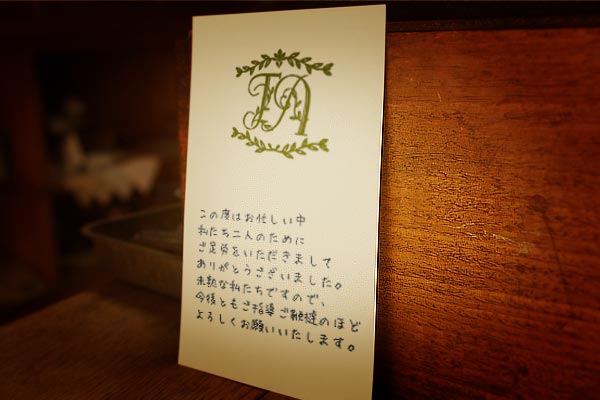 TA
この度はお忙しい中
私たち二人のために
ご足労をいただきまして
ありがとうございました。
未熟な私たちですので、
今後ともご指導ご鞭撻のほど
よろしくお願いいたします。